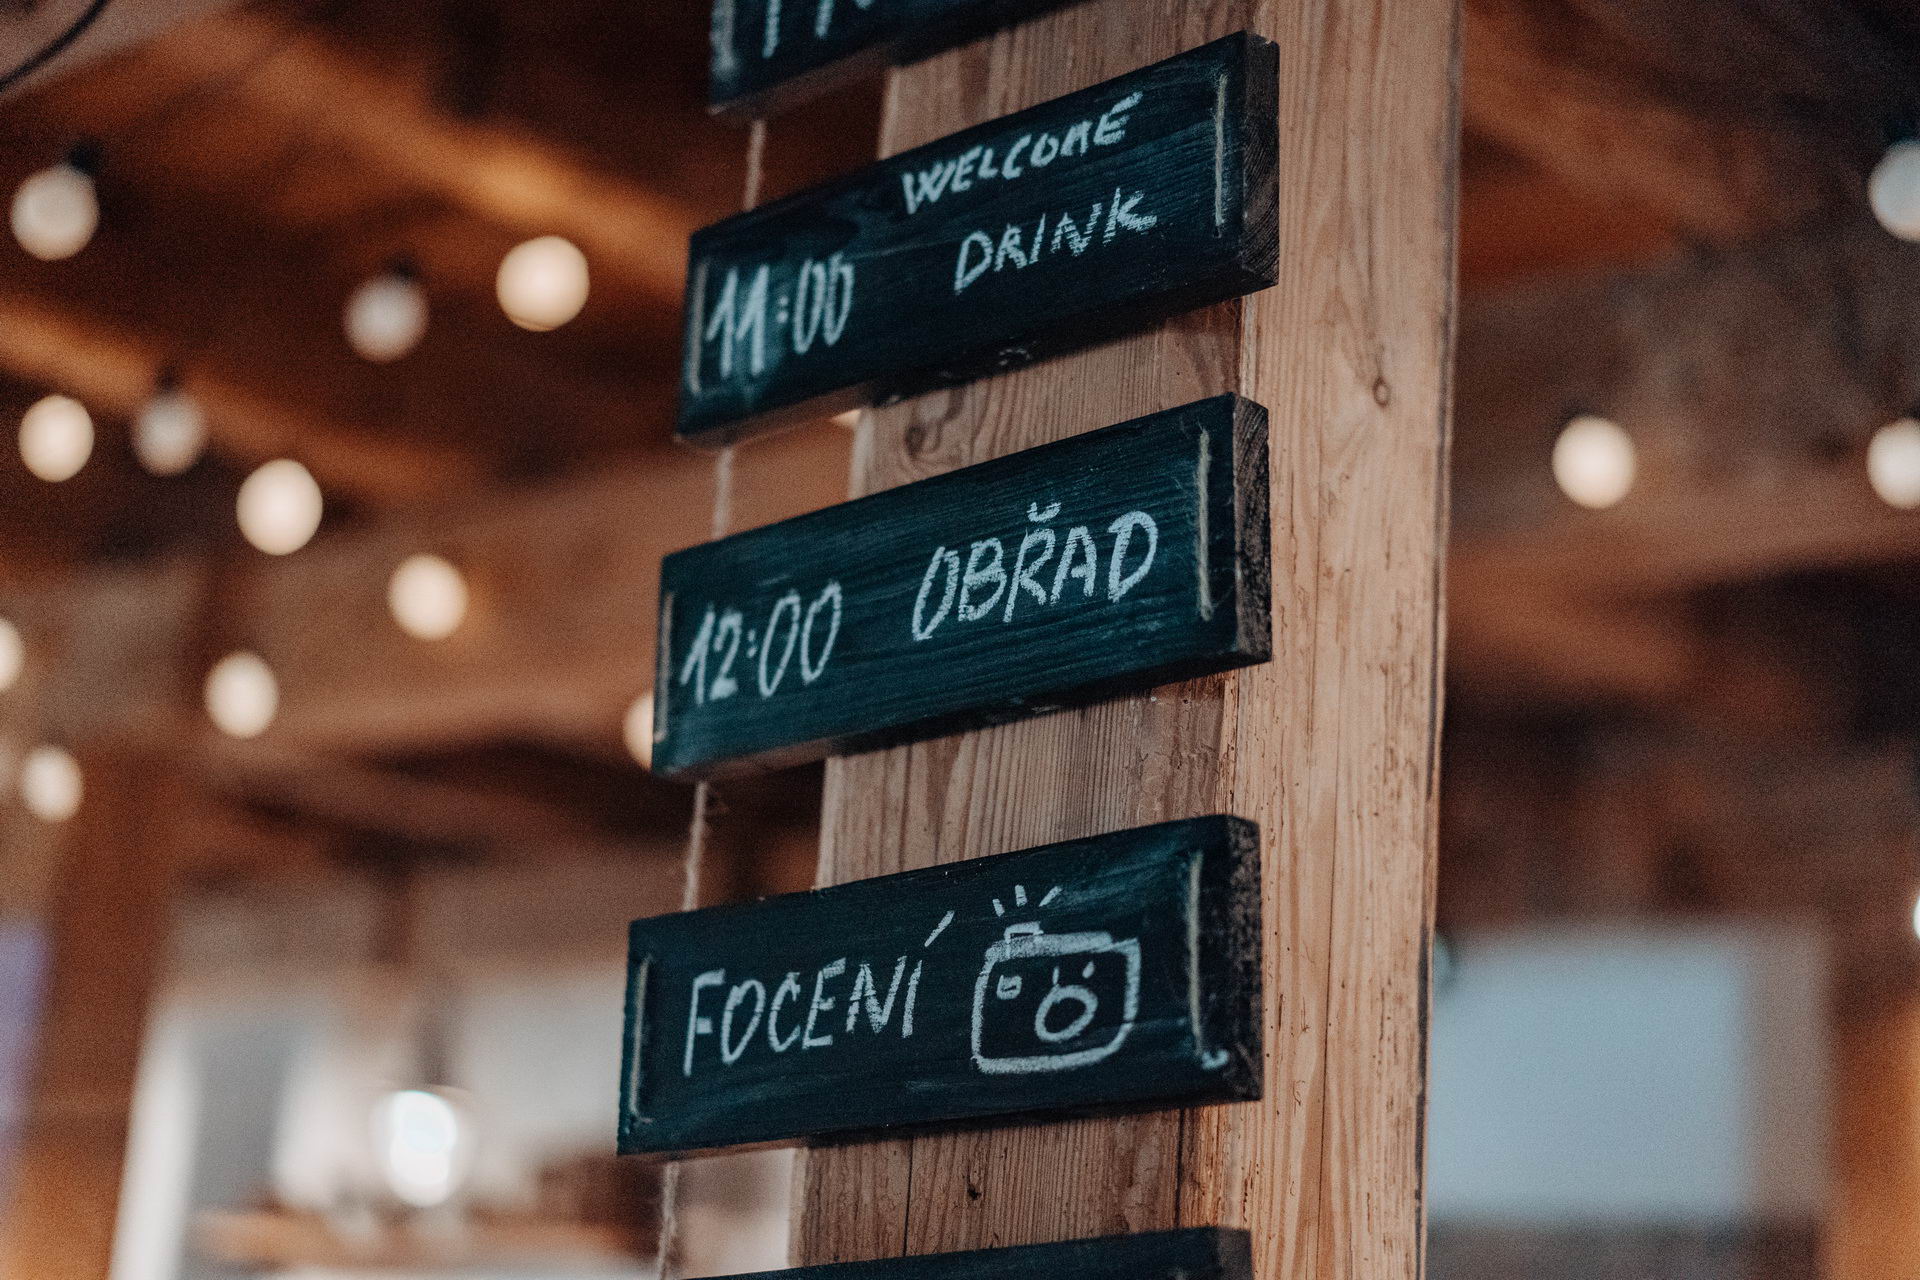 WELCOME
11:00 DRINK
12:00 OBŘAD
FOCENÍ